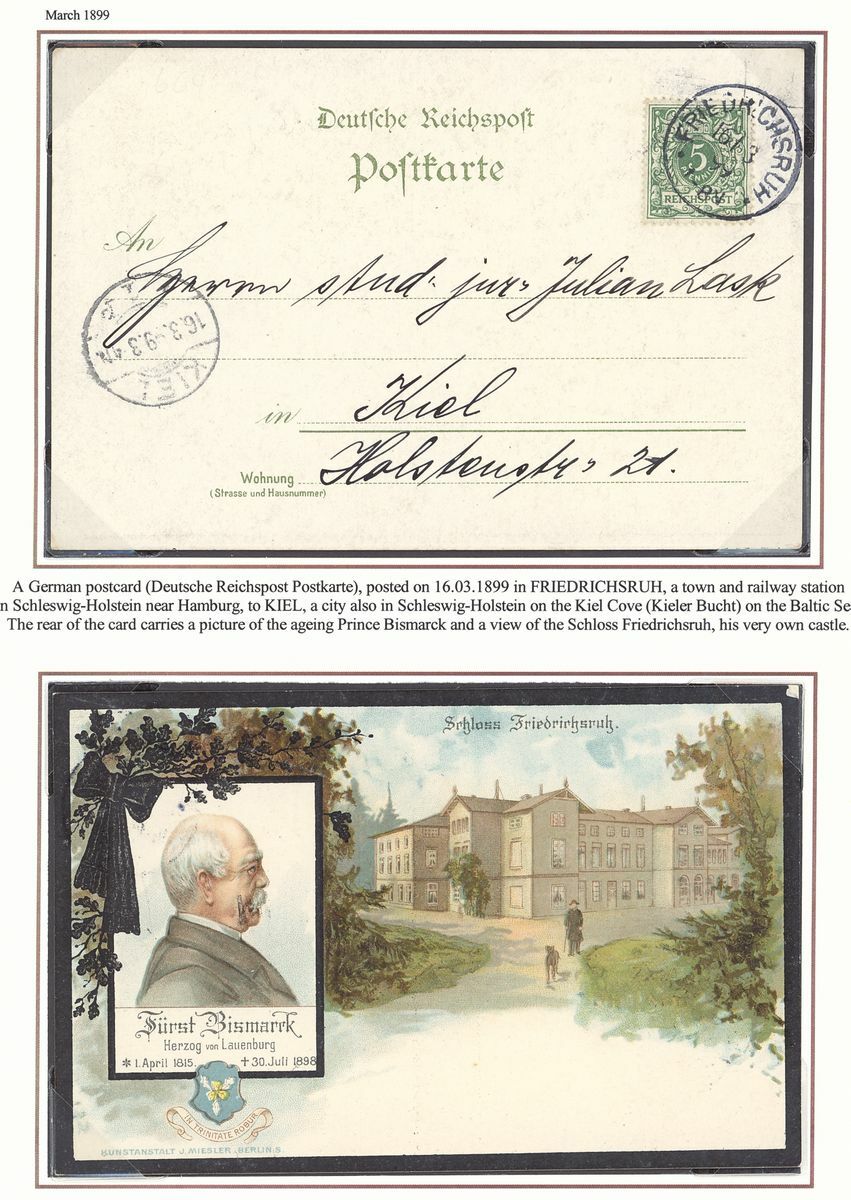 March 1899
Deutsche Reichspost
Postkarte
FRIEDRICHSRUH
16/3
5
REICHSPOST
An
Herrn stud. jur. Julian Lask
16.3.
KIEL
in Kiel
Wohnung Holstenstr. 21.
(Strasse und Hausnummer)
A German postcard (Deutsche Reichspost Postkarte), posted on 16.03.1899 in FRIEDRICHSRUH, a town and railway station
n Schleswig-Holstein near Hamburg, to KIEL, a city also in Schleswig-Holstein on the Kiel Cove (Kieler Bucht) on the Baltic Se
The rear of the card carries a picture of the ageing Prince Bismarck and a view of the Schloss Friedrichsruh, his very own castle.
Schloss Friedrichsruh.
Fürst Bismarck
Herzog von Lauenburg
* 1. April 1815. † 30. Juli 1898
IN TRINITATE ROBUR
KUNSTANSTALT J. MIESLER, BERLIN S.